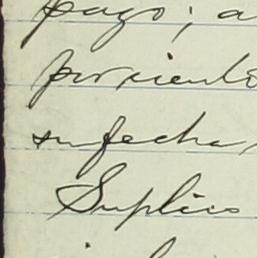 pago; a
porciento
su fecha,
Suplico